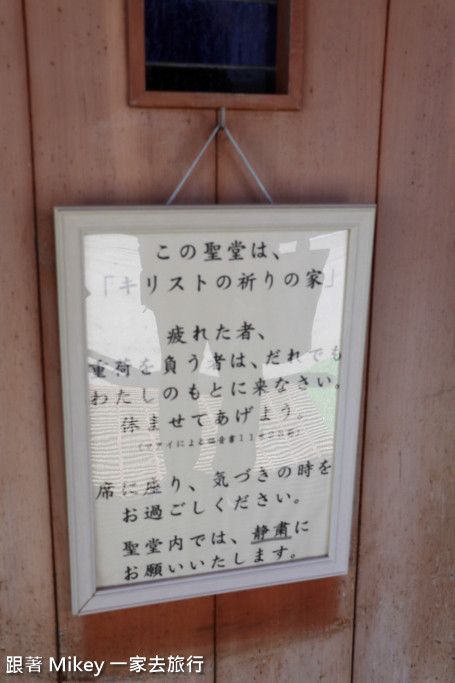 この聖堂は、
「キリストの祈りの家」
疲れた者、
重荷を負う者は、だれでも
わたしのもとに来なさい。
休ませてあげよう。
(マタイによる福音書11章28節)
席に座り、気づきの時を
お過ごしください。
聖堂内では、静粛に
お願いいたします。
跟著 Mikey 一家去旅行